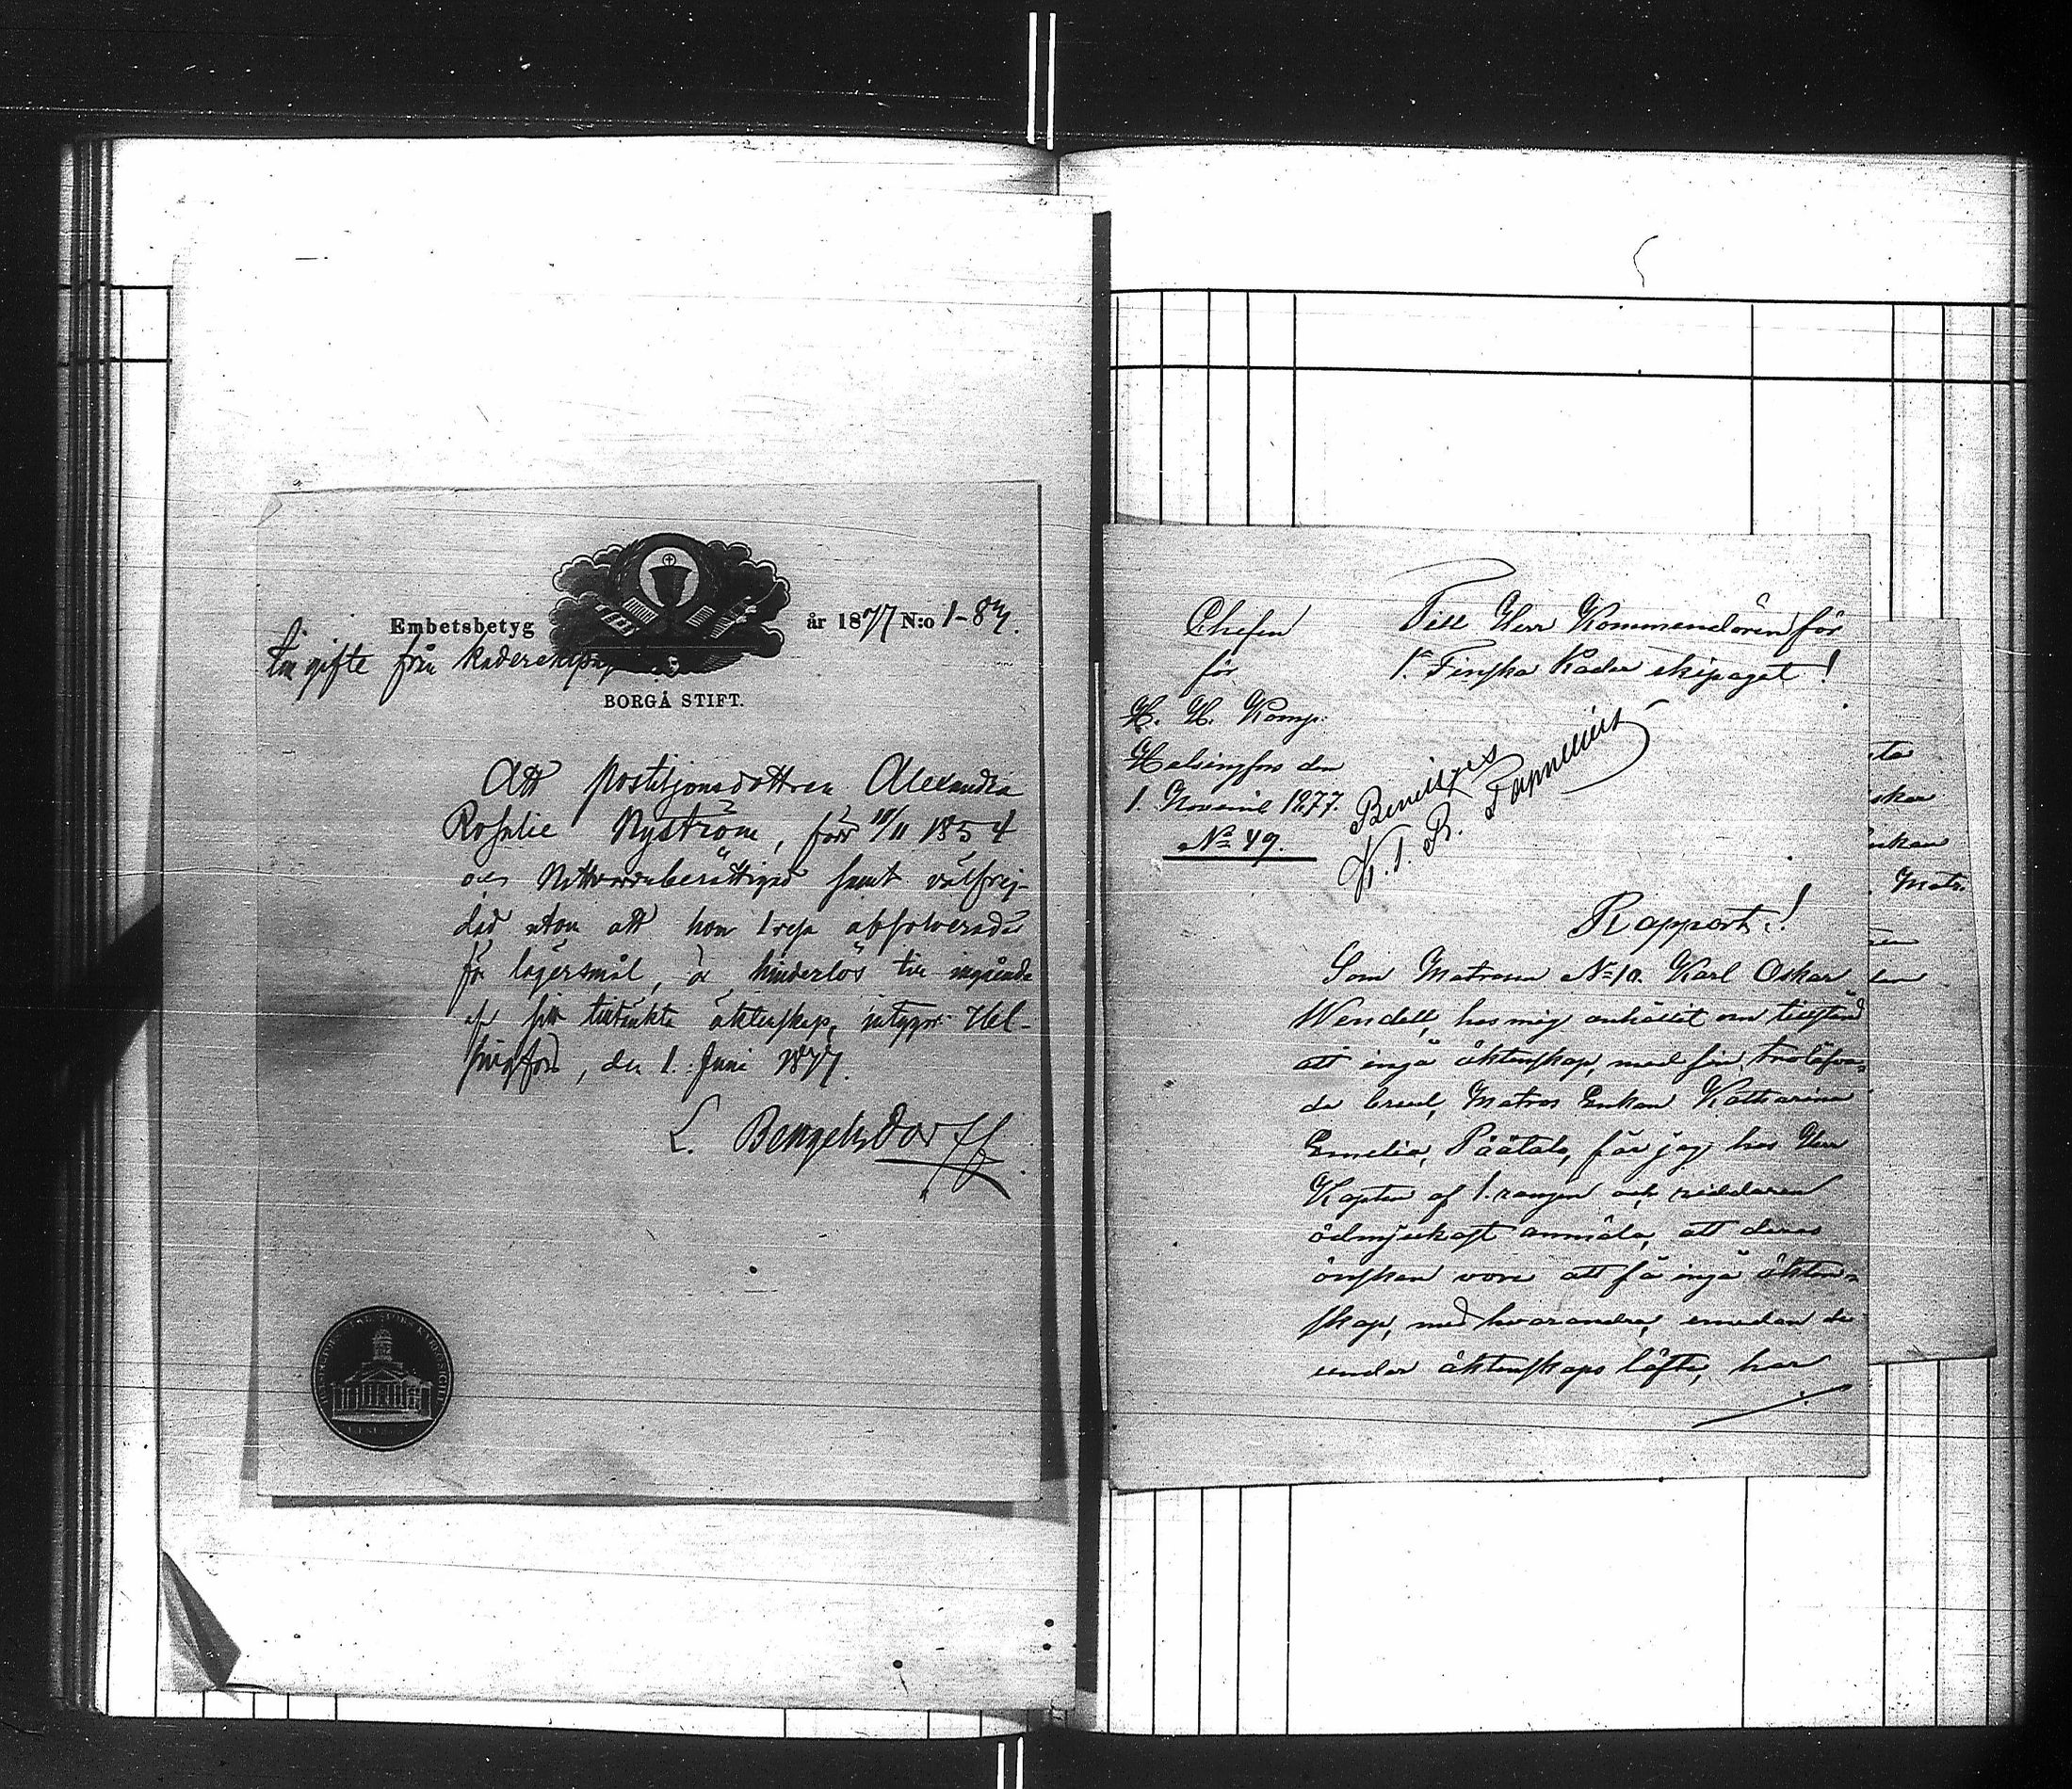 Embetsbetyg år 1877 N:o 1-87.
till gifte från kaderekipaget
BORGÅ STIFT.
Att postiljonsdottren Alexandra
Rosalie Nyström, född 11/11 1854
och Nattvardsberättigad samt välfrej-
dad utom att hon 1 resa absolverades
för lägersmål, är hinderlös till ingående
af sitt tilltänkta äktenskap, intygar Hel-
singfors, den 1. Juni 1877.
L. Bengelsdorff
Chefen
för
Komp.
Helsingfors den
1. November 1877.
No 49.
Till Herr Kommendören för
1a Finska Kader ekipaget!
Beviljas
Rapport!
Som Matrosen No 10. Karl Oskar
Wendell, hos mig anhållit om tillstånd
att ingå äktenskap, med sin trolofva-
de brud, Matros Enkan Katharina
Emelia, Päätalo, får jag hos Herr
Kapten af 1. rangen och riddaren
ödmjukast anmäla, att deras
önskan vore att få ingå äkten-
skap, med hvarandra, emedan de
under äktenskaps löfte, har
Matr.